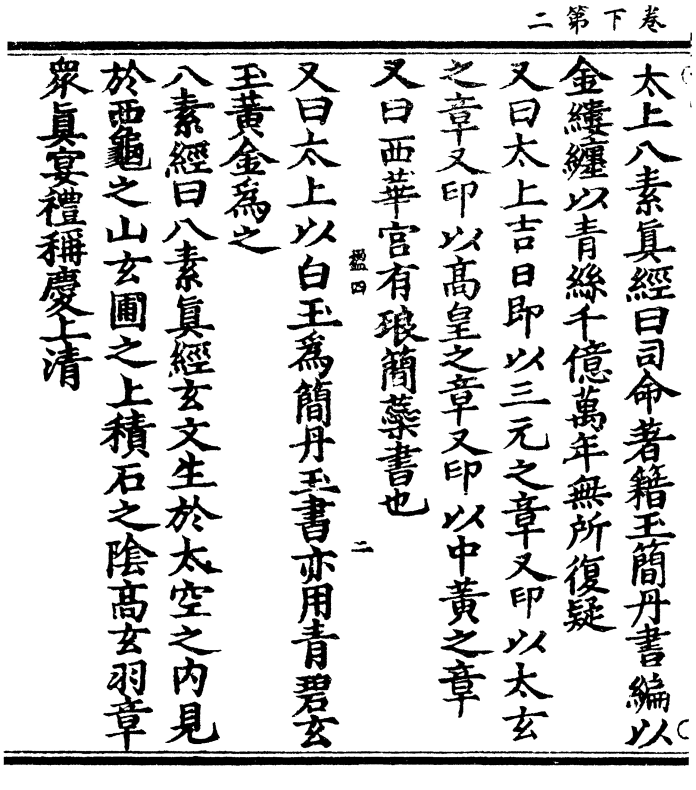 卷下第二
太上八素真經曰司命著籍玉簡丹書編以
金縷纏以青絲千億萬年無所復疑
又曰太上吉日即以三元之章又印以太玄
之章又印以高皇之章又印以中黃之章
又曰西華宮有琅簡蘂書也
楹四 二
又曰太上以白玉為簡丹玉書亦用青碧玄
玉黃金為之
八素經曰八素真經玄文生於太空之內見
於西龜之山玄圃之上積石之陰高玄羽章
衆真宴禮稱慶上清